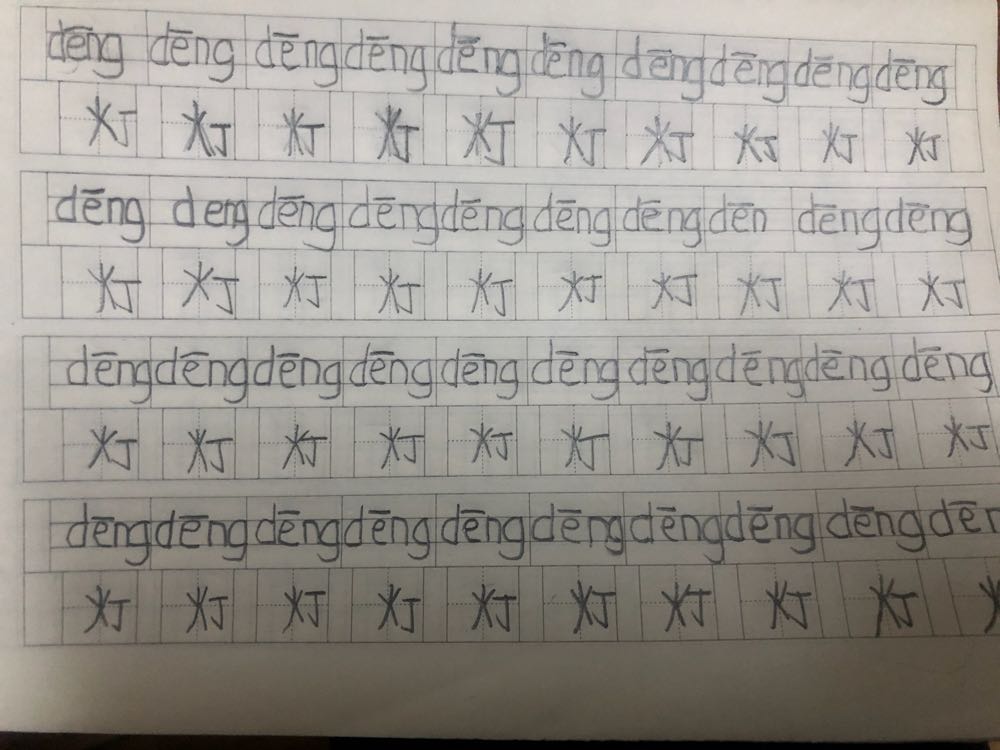 dēng dēng dēng dēng dēng dēng dēng dēng dēng dēng
灯 灯 灯 灯 灯 灯 灯 灯 灯 灯
dēng deng dēng dēng dēng dēng dēng dēn dēng dēng
灯 灯 灯 灯 灯 灯 灯 灯 灯 灯
dēng dēng dēng dēng dēng dēng dēng dēng dēng dēng
灯 灯 灯 灯 灯 灯 灯 灯 灯 灯
dēng dēng dēng dēng dēng dēng dēng dēng dēng dēn
灯 灯 灯 灯 灯 灯 灯 灯 灯